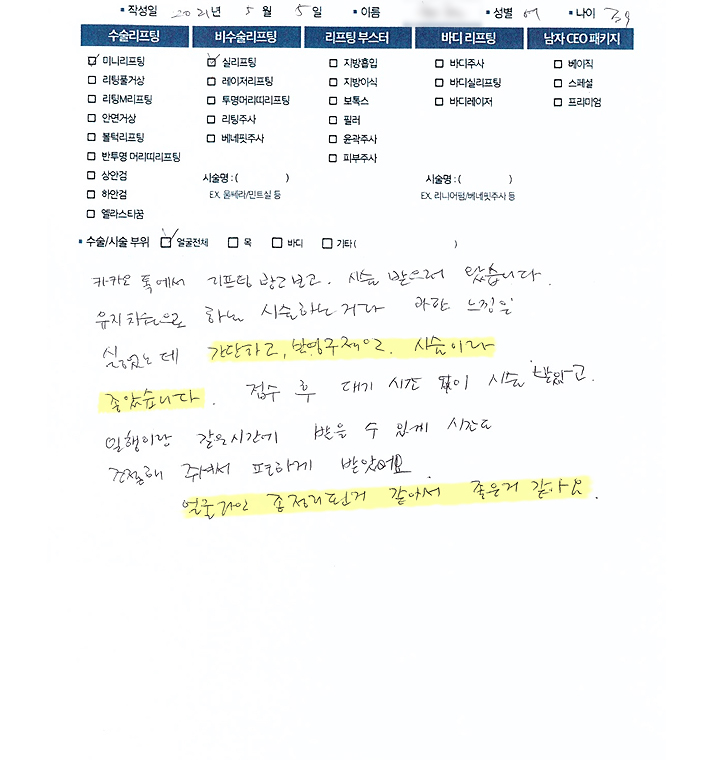 ▪ 작성일 2021년 5월 5일 ▪ 이름 ▪ 성별 여 ▪ 나이 39
수술리프팅 비수술리프팅 리프팅 부스터 바디 리프팅 남자 CEO 패키지
미니리프팅 실리프팅 지방흡입 바디주사 베이직
리팅풀거상 레이저리프팅 지방이식 바디실리프팅 스페셜
리팅M리프팅 투명머리띠리프팅 보톡스 바디레이저 프리미엄
안면거상 리팅주사 필러
볼턱리프팅 베네핏주사 윤곽주사
반투명 머리띠리프팅 피부주사
상안검 시술명 : ( ) 시술명 : ( )
하안검 EX. 울쎄라/민트실 등 EX. 리니어펌/베네핏주사 등
엘라스티꿈
▪ 수술/시술 부위 얼굴전체 목 바디 기타 ( )
카카오 톡에서 리프팅 광고보고. 시술 받으러 왔습니다.
유지차원으로 하는 시술하는거라 과한 느낌을
싫었는데 간단하고, 반영구적인. 시술이라
좋았습니다. 접수 후 대기 시간 없이 시술 받았고.
일행이랑 같은시간에 받을 수 있게 시간도
조절해 주셔서 편하게 받았어요.
얼굴라인 좀 정리된거 같아서 좋은거 같아요.